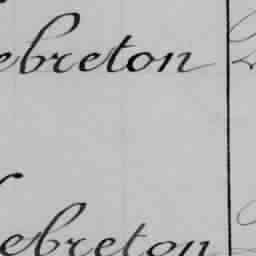 ebreton
ebreton